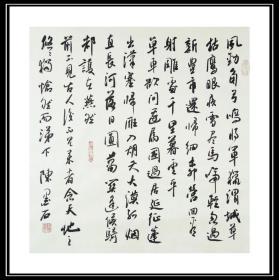 風勁角弓鳴將軍獵渭城草
枯鷹眼疾雪盡馬蹄輕忽過
新豐市還歸細柳營回看
射雕處千里暮雲平
單車欲問邊屬國過居延征蓬
出漢塞歸雁入胡天大漠孤煙
直長河落日圓蕭關逢候騎
都護在燕然
前不見古人後不見來者念天地之
悠悠獨愴然而涕下 陳墨石